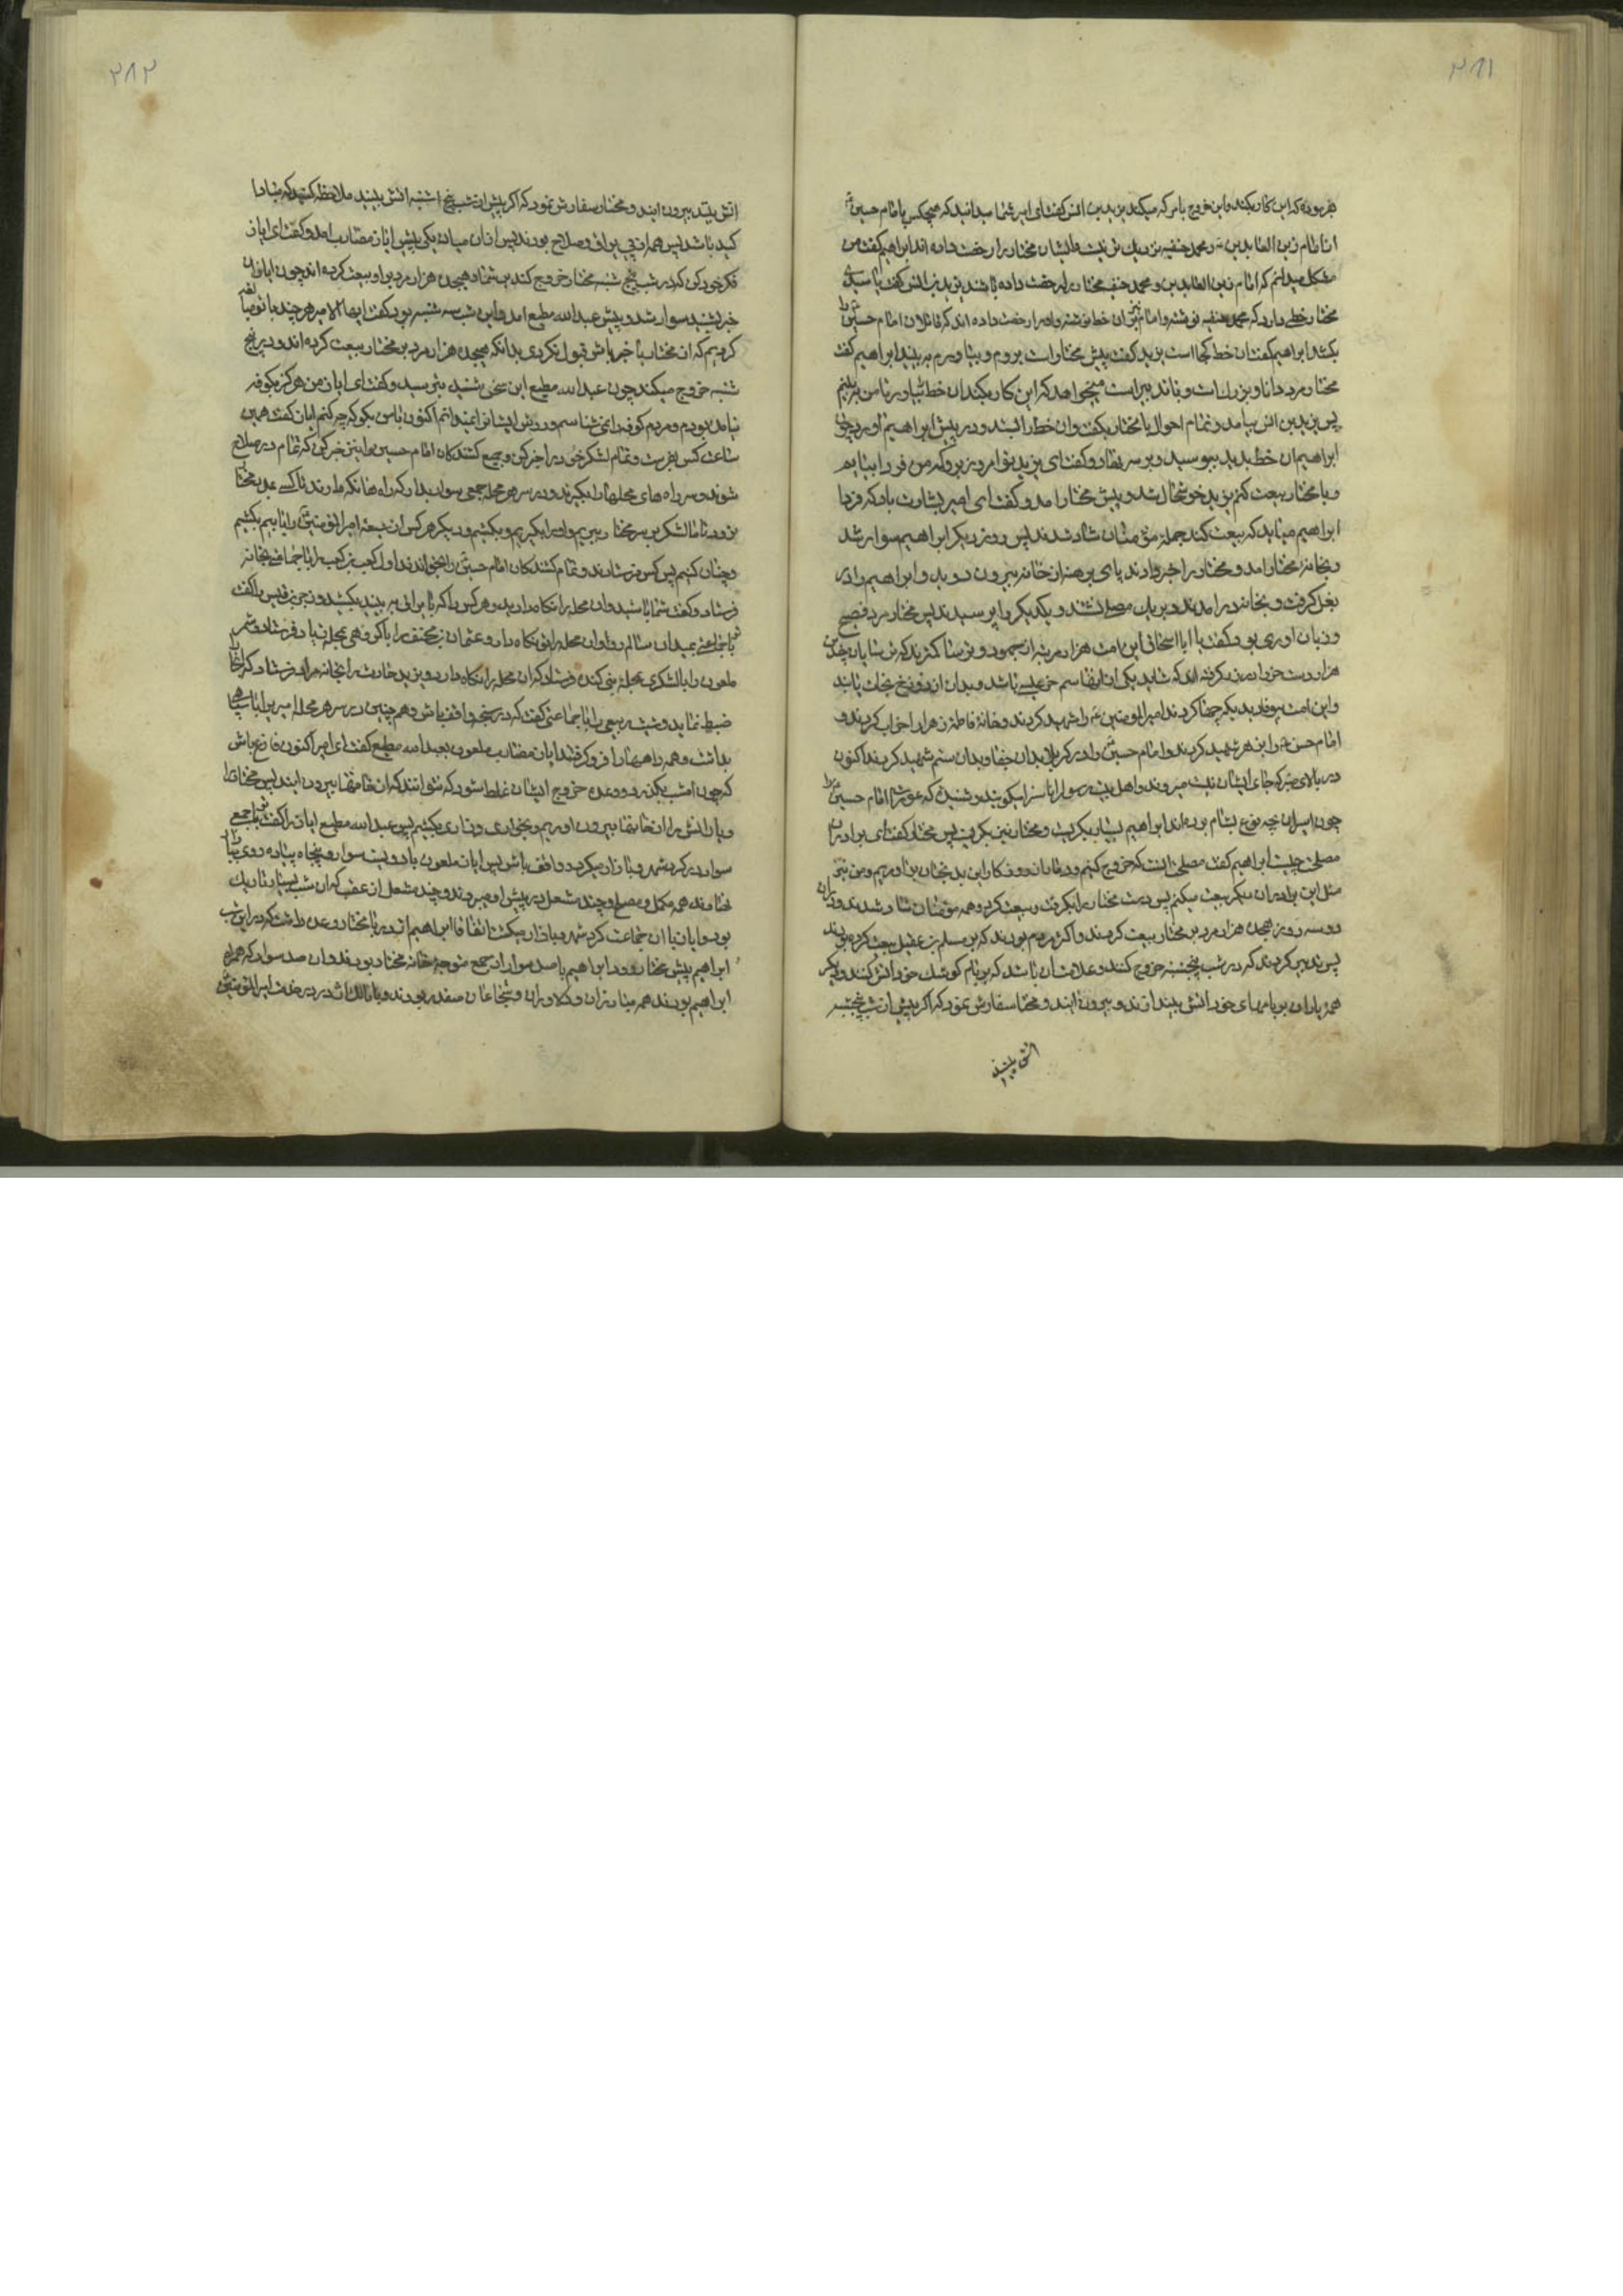 ۳۸۱
فرموده که این کار بکند و این خروج با من که میکند یزید بن انس گفت ای امیر شما میدانید که هیچکس با امام حسین
امام زین العابدین و محمد حنفیه نزدیک تر نیست و ایشان مختار را رخصت داده اند ابراهیم گفت من
مشکل میدانم که امام زین العابدین و محمد حنفیه مختار را رخصت داده باشند یزید بن انس گفت یا سیدی
مختار خطی دارد که محمد حنفیه نوشته و امام نیز بران خط نوشته و او را رخصت داده اند که قاتلان امام حسین را
بکشد ابراهیم گفت آن خط کجا است یزید گفت پیش مختار است بروم و بیاورم به بیند ابراهیم گفت
مختار مرد دانا و بزرک است و میخواهد که این کار بکند آن خط بیاور تا من به بینم
پس یزید بن انس بیامد و تمام احوال با مختار بگفت و آن خط را بستد و در پیش ابراهیم آورد چون
ابراهیم آن خط بدید ببوسید و بر سر نهاد و گفت ای یزید تو امروز برو که من فردا بیایم
و با مختار بیعت کنم یزید خوشحال شد و پیش مختار آمد و گفت ای امیر بشارت باد که فردا
ابراهیم میآید که بیعت کند جمله مؤمنان شاد شدند پس روز دیگر ابراهیم سوار شد
و بخانه مختار آمد و مختار را خبر دادند پای برهنه از خانه بیرون دوید و ابراهیم را در
بغل گرفت و بخانه در آمدند و بر یک مصلی نشستند و یکدیگر را پرسیدند پس مختار مرد فصیح
و زبان آوری بود گفت یا ابا اسحاق این امت هزار مرتبه از جهود و ترسا کمترند که ترسایان چندین
هزار درست خر از زر گرفته اند که شاید یکی از آنها سم خر عیسی باشد و بدان از دوزخ نجات یابند
و این امت بیوفا بدیدید که چه جفا کردند امیر المومنین را شهید کردند و خانه فاطمه زهرا را خراب کردند و
امام حسن را بزهر شهید کردند و امام حسین را در کربلا بدان جفا و بدان ستم شهید کردند اکنون
در بالای منبر که جای ایشان نیست میروند و اهل بیت رسول را ناسزا میگویند و شنیدی که عورتان امام حسین را
چون اسیران بچه نوع بشام برده اند ابراهیم بسیار بگریست و مختار نیز بگریست پس مختار گفت ای برادر
مصلحت چیست ابراهیم گفت مصلحت آنست که خروج کنیم و دمار از روزکار این بدبختان برآوریم و من نیز
مثل این برادران دیگر بیعت میکنم پس دست مختار را بگرفت و بیعت کرد و همه مؤمنان شاد شدند و در آن
دو سه روز هیجده هزار مرد بر مختار بیعت کردند و اکثر مردم بودند که بر مسلم بن عقیل بیعت کرده بودند
پس تدبیر کردند که در شب پنجشنبه خروج کنند و علامت آن باشد که بر بام کوشک خود آتش کنند و دیگر
همه یاران بر بامهای خود آتش بیندازند و بیرون آیند و مختار سفارش نمود که اگر پیش از شب پنجشنبه
آتش بینند
۳۸۲
آتش بینند بیرون آیند و مختار سفارش نمود که اگر پیش از شب پنجشنبه آتش بینید ملاحظه کنید که مبادا
کید باشد پس همه از پی یراق و سلاح بودند پس از آن میان یکی پیش ایاز مضارب آمد و گفت ای ایاز
فکر خود کن که در شب پنج شنبه مختار خروج کند بر شما و هیجده هزار مرد بر او بیعت کرده اند چون ایاز آن
خبر بشنید سوار شد و پیش عبدالله مطیع آمد و این شب سه شنبه بود گفت ایها الامیر هر چند با تو مبالغه
کردیم که از مختار با خبر باش قبول نکردی بدانکه هیجده هزار مرد بر مختار بیعت کرده اند و در پنج
شنبه خروج میکند چون عبدالله مطیع این سخن بشنید بترسید و گفت ای ایاز من هرگز بکوفه
نیامده بودم و مردم کوفه را نمی شناسم و روش ایشان را نمیدانم اکنون با من بکو که چه کنم ایاز گفت همین
ساعت کس بفرست و تمام لشکر خود را خبر کن و جمیع کشندکان امام حسین را نیز خبر کن که تمام در سلاح
شوند و سر راه های محلها را بگیرند و در سر هر محله جمعی سوار بدار که راه ها نگه دارند تا کسی بمدد مختار
نرود تا ما لشکر بر سر مختار بریم و او را بگیریم و بکشیم و دیگر هر کس از شیعه امیر المومنین را بیابیم بکشیم
و چنان کنیم پس کس فرستادند و تمام کشندکان امام حسین را بخواندند اول کعب بن کعب را با جماعتی بخانه
فرستاد و گفت شما باشید و آن محله را نکاه دارید و هر کس را که با یراق به بیند بکشید و زحر بن قیس را گفت
با جماعتی بمیدان سالم رو و آن محله را تو نکاه دار و عثمان بن مختف را با گروهی بمحله فرستاد و شمر
ملعون را با لشکری بمحله بنی کنده فرستاد که آن محله را نکاه دارد و یزید حارث را بخانه مراد فرستاد که آنجا را
ضبط نماید و شبث ربیعی را با جماعتی گفت که در سنجه واقف باش و همچنین در سر هر محله امیری را با سپاهی
بداشت و همه راهها را فرو گرفتند ایاز مضارب ملعون بعبدالله مطیع گفت ای امیر اکنون فارغ باش
که چون امشب بگذرد و وعده خروج ایشان غلط شود که نتوانند که از خانها بیرون آیند پس مختار را
و یارانش را از خانها بیرون آوریم و بخواری و زاری بکشیم پس عبدالله مطیع ایاز را گفت با جمعی
سوار در گرد شهر و بازار میگرد و واقف باش پس ایاز ملعون با دویست سوار و پنجاه پیاده روی براه
نهادند همه مکمل و مسلح و چند مشعل در پیش او میبردند و چند مشعل از عقب که آن شب بسیار تاریک
بود و ایاز با آن جماعت گرد شهر و بازار میگشت اتفاقا ابراهیم اشتر با مختار وعده داشت که در این شب
ابراهیم پیش مختار رود ابراهیم با صد سوار از جمع متوجه خانه مختار بود و آن صد سوار که همراه
ابراهیم بودند همه مبارزان و دلاوران و شجاعان صفدر بودند و با مالک اشتر در خدمت امیر المومنین